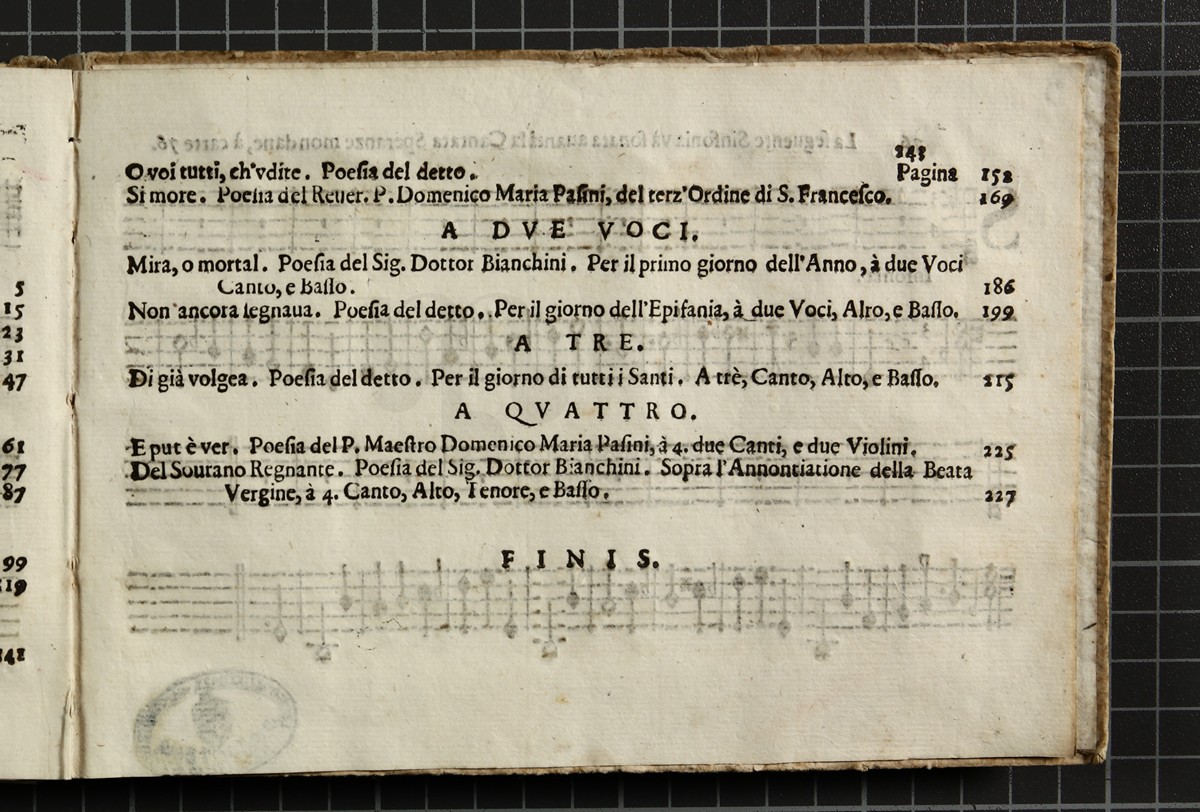 5
15
23
31
47
61
77
87
99
119
141
La seguente Sinfonia và sonata auanti la Cantata Speranze mondane, à carte 76
141
O voi tutti, ch'vdite. Poeſia del detto. Pagina 152
Si more. Poeſia del Reuer. P. Domenico Maria Paſini, del terz'Ordine di S. Franceſco. 169
A DVE VOCI.
Mira, o mortal. Poeſia del Sig. Dottor Bianchini. Per il primo giorno dell'Anno, à due Voci
Canto, e Baſſo. 186
Non ancora ſegnaua. Poeſia del detto. Per il giorno dell'Epifania, à due Voci, Alto, e Baſſo. 199
A TRE.
Di già volgea. Poeſia del detto. Per il giorno di tutti i Santi. A trè, Canto, Alto, e Baſſo. 215
A QVATTRO.
E put è ver. Poeſia del P. Maeſtro Domenico Maria Paſini, à 4. due Canti, e due Violini. 225
Del Sourano Regnante. Poeſia del Sig. Dottor Bianchini. Sopra l'Annontiatione della Beata
Vergine, à 4. Canto, Alto, Tenore, e Baſſo. 227
FINIS.